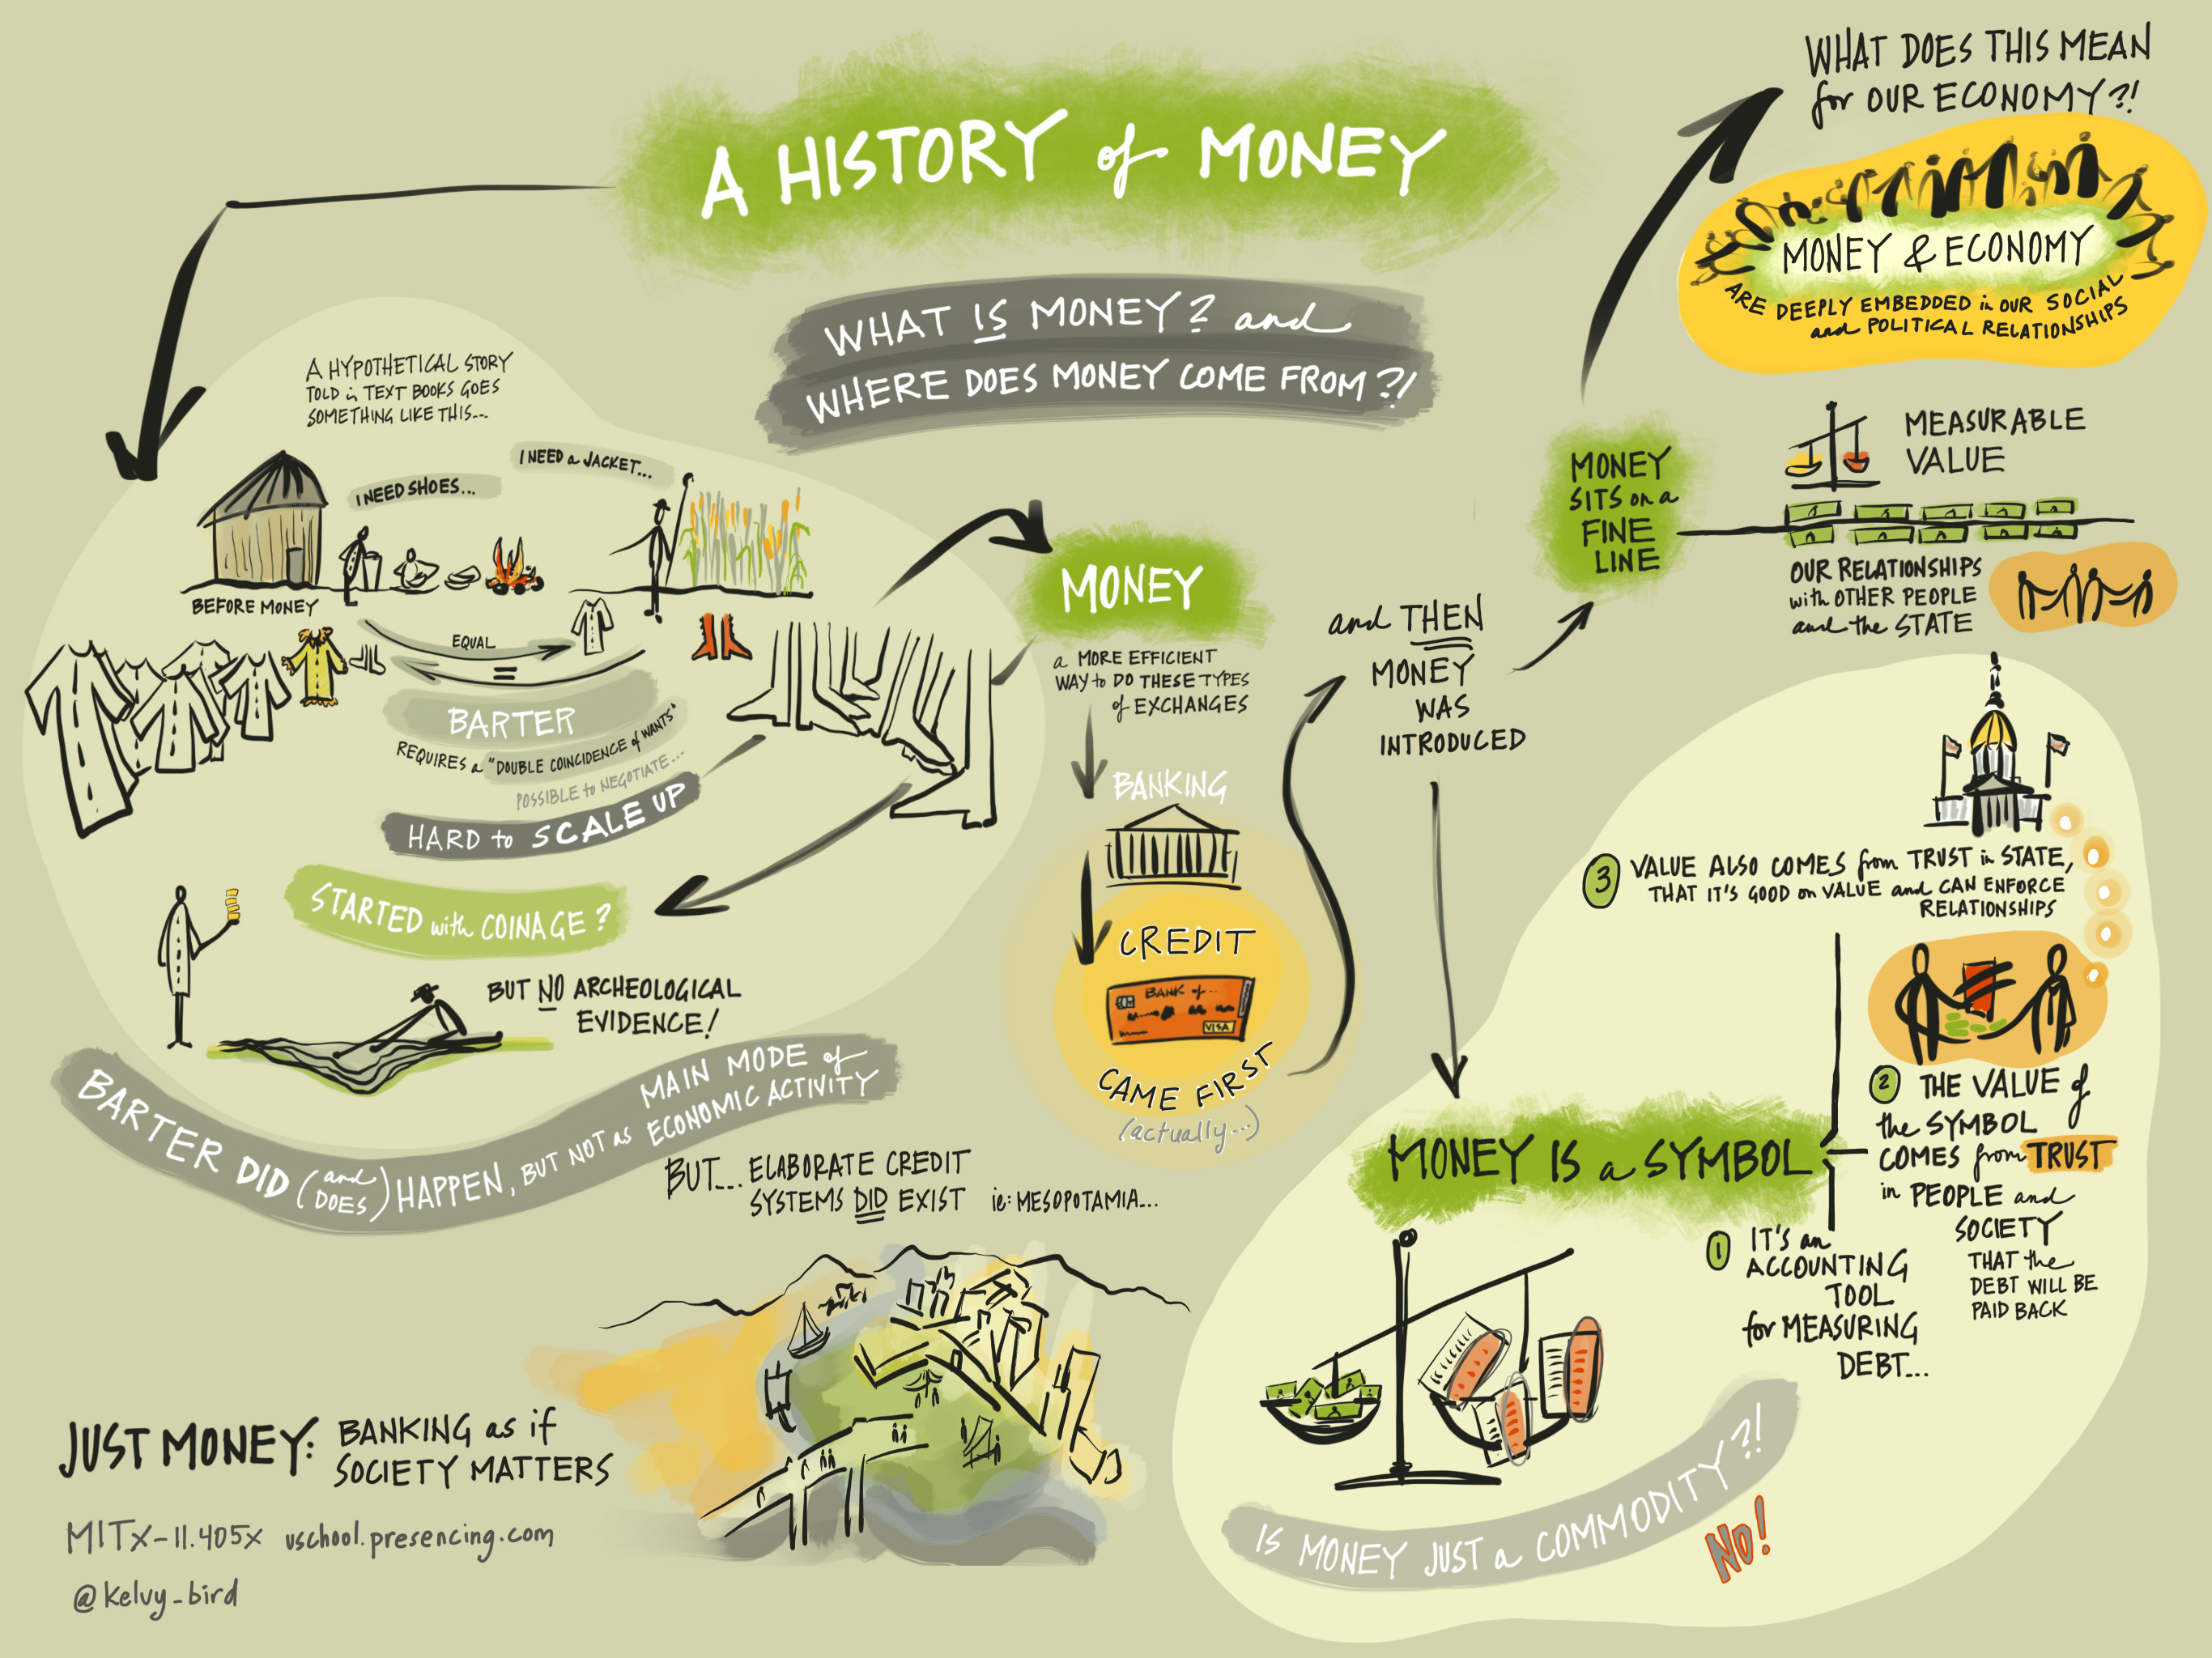 A HISTORY of MONEY
WHAT IS MONEY? and
WHERE DOES MONEY COME FROM?!
A HYPOTHETICAL STORY
TOLD in TEXT BOOKS GOES
SOMETHING LIKE THIS...
I NEED SHOES...
I NEED a JACKET...
BEFORE MONEY
EQUAL
=
BARTER
REQUIRES a "DOUBLE COINCIDENCE of WANTS"
POSSIBLE to NEGOTIATE...
HARD to SCALE UP
STARTED with COINAGE?
BUT NO ARCHEOLOGICAL
EVIDENCE!
BARTER DID (and DOES) HAPPEN, BUT NOT as MAIN MODE of ECONOMIC ACTIVITY
BUT... ELABORATE CREDIT
SYSTEMS DID EXIST ie: MESOPOTAMIA...
MONEY
a MORE EFFICIENT
WAY to DO THESE TYPES
of EXCHANGES
BANKING
CREDIT
BANK of..
VISA
CAME FIRST
(actually...)
and THEN
MONEY
WAS
INTRODUCED
MONEY
SITS on a
FINE
LINE
MEASURABLE
VALUE
OUR RELATIONSHIPS
with OTHER PEOPLE
and the STATE
WHAT DOES THIS MEAN
for OUR ECONOMY?!
MONEY & ECONOMY
ARE DEEPLY EMBEDDED in OUR SOCIAL
and POLITICAL RELATIONSHIPS
MONEY IS a SYMBOL
1 IT'S an
ACCOUNTING
TOOL
for MEASURING
DEBT...
2 THE VALUE of
the SYMBOL
COMES from TRUST
in PEOPLE and
SOCIETY
THAT the
DEBT WILL BE
PAID BACK
3 VALUE ALSO COMES from TRUST in STATE,
THAT IT'S GOOD on VALUE and CAN ENFORCE
RELATIONSHIPS
IS MONEY JUST a COMMODITY?!
NO!
JUST MONEY: BANKING as if
SOCIETY MATTERS
MITx-11.405x uschool.presencing.com
@kelvy_bird